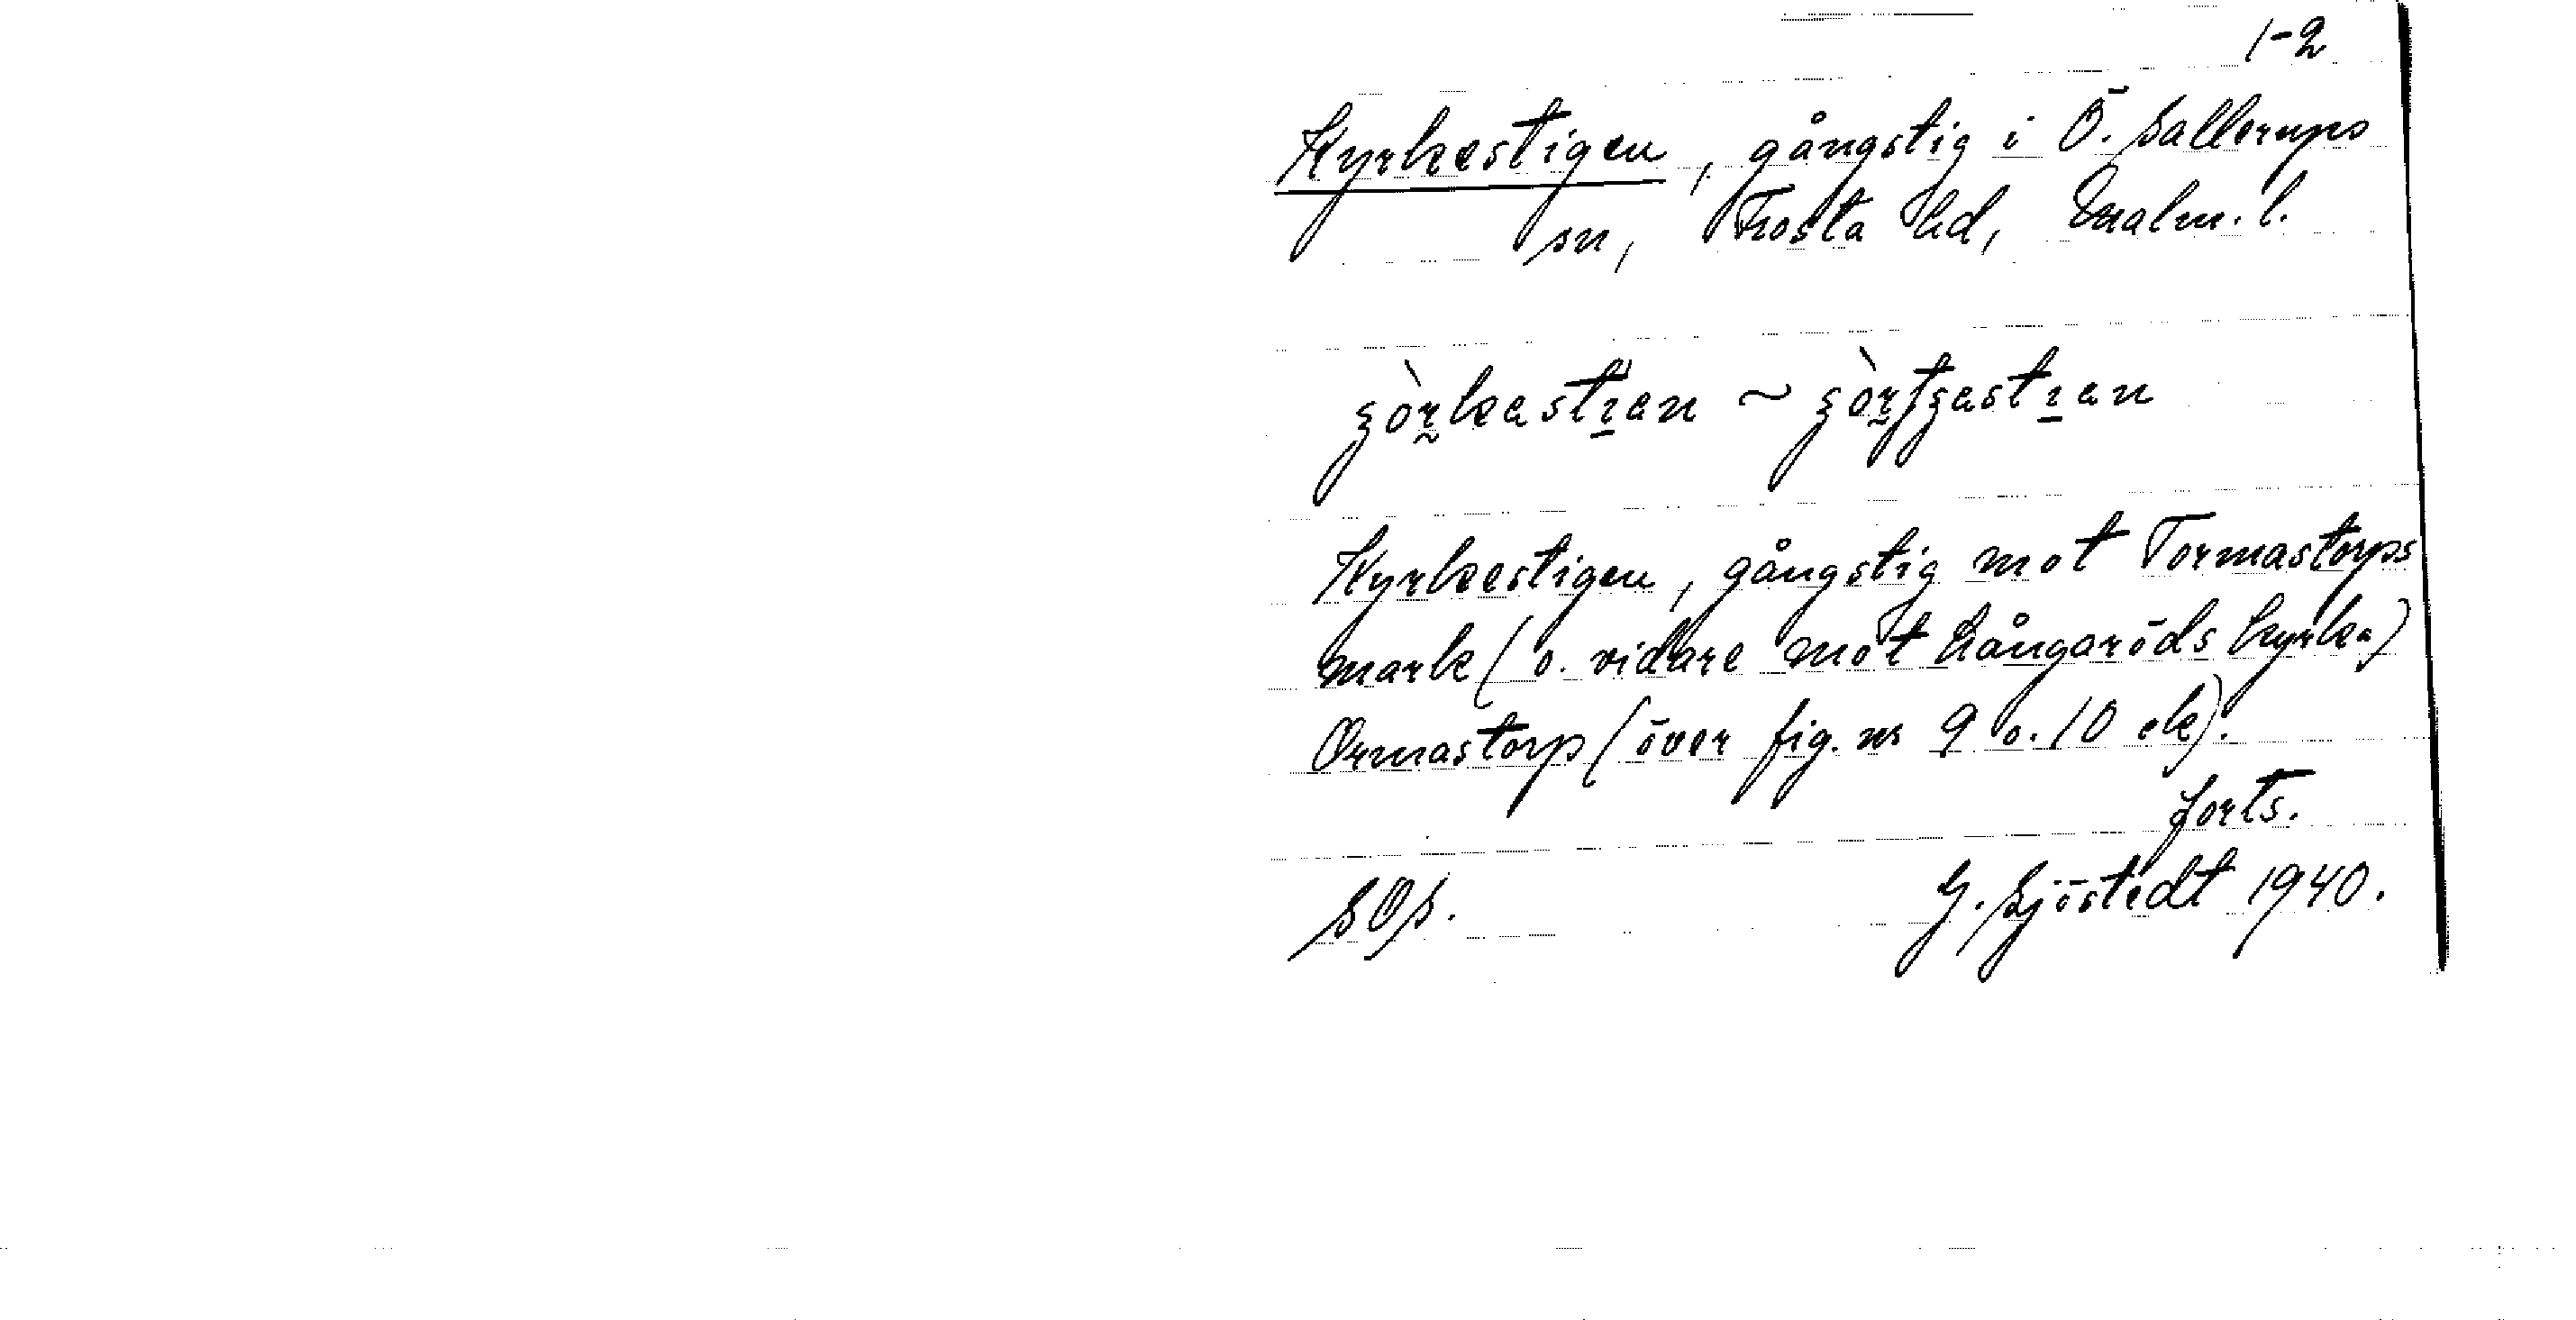 1-2
Kyrkestigen, gångstig i Ö. Sallerups
sn, Frosta hd, Malm. l.
Kyrkestigen, gångstig mot Tormastorps
mark (o. vidare mot Långaröds kyrka)
Ormastorp (över fig. nr 9 o. 10 ek).
forts.
SOS. G. Sjöstedt 1940.